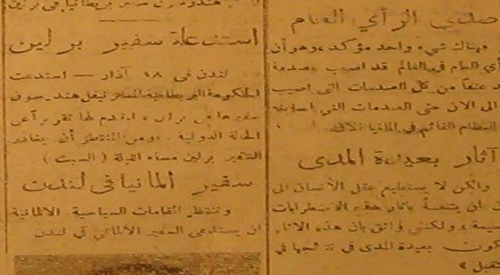 صدى الرأي العام
هناك شيء واحد مؤكد وهو أن
رأي العام في العالم قد اصيب بصدمة
عنفا من كل الصدمات التي اصيب
الى الان حتى الصدمات التي
النظام القائم في المانيا
آثار بعيدة المدى
ولكن لا يستطيع عقل الانسان الى
ان يتنبأ بآثار هذه الاضطرابات
ولكنني واثق بان هذه الاثار
ستكون بعيدة المدى في نتائجها في
استدعاء سفير برلين
لندن في ١٨ آذار — استدعت
الحكومة البريطانية المستر نيفل هندرسون
سفيرها في برلين ليقدم لها تقريراً عن
الحالة الدولية. ومن المنتظر أن يغادر
السفير برلين مساء الليلة (السبت)
سفير المانيا في لندن
وتنتظر المقامات السياسية الالمانية
ان يستدعى السفير الالماني في لندن